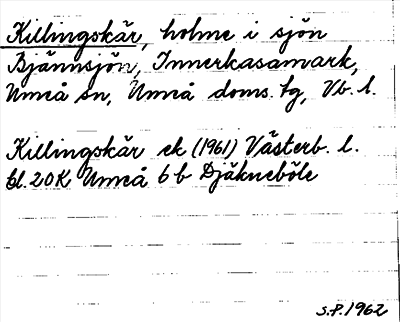 Killingskär, holme i sjön
Bjännsjön, Innerkasamark,
Umeå sn, Umeå doms. tg, Vb. l.
Killingskär ek (1961) Västerb. l.
bl. 20K Umeå 6 b Djäkneböle
S.P. 1962